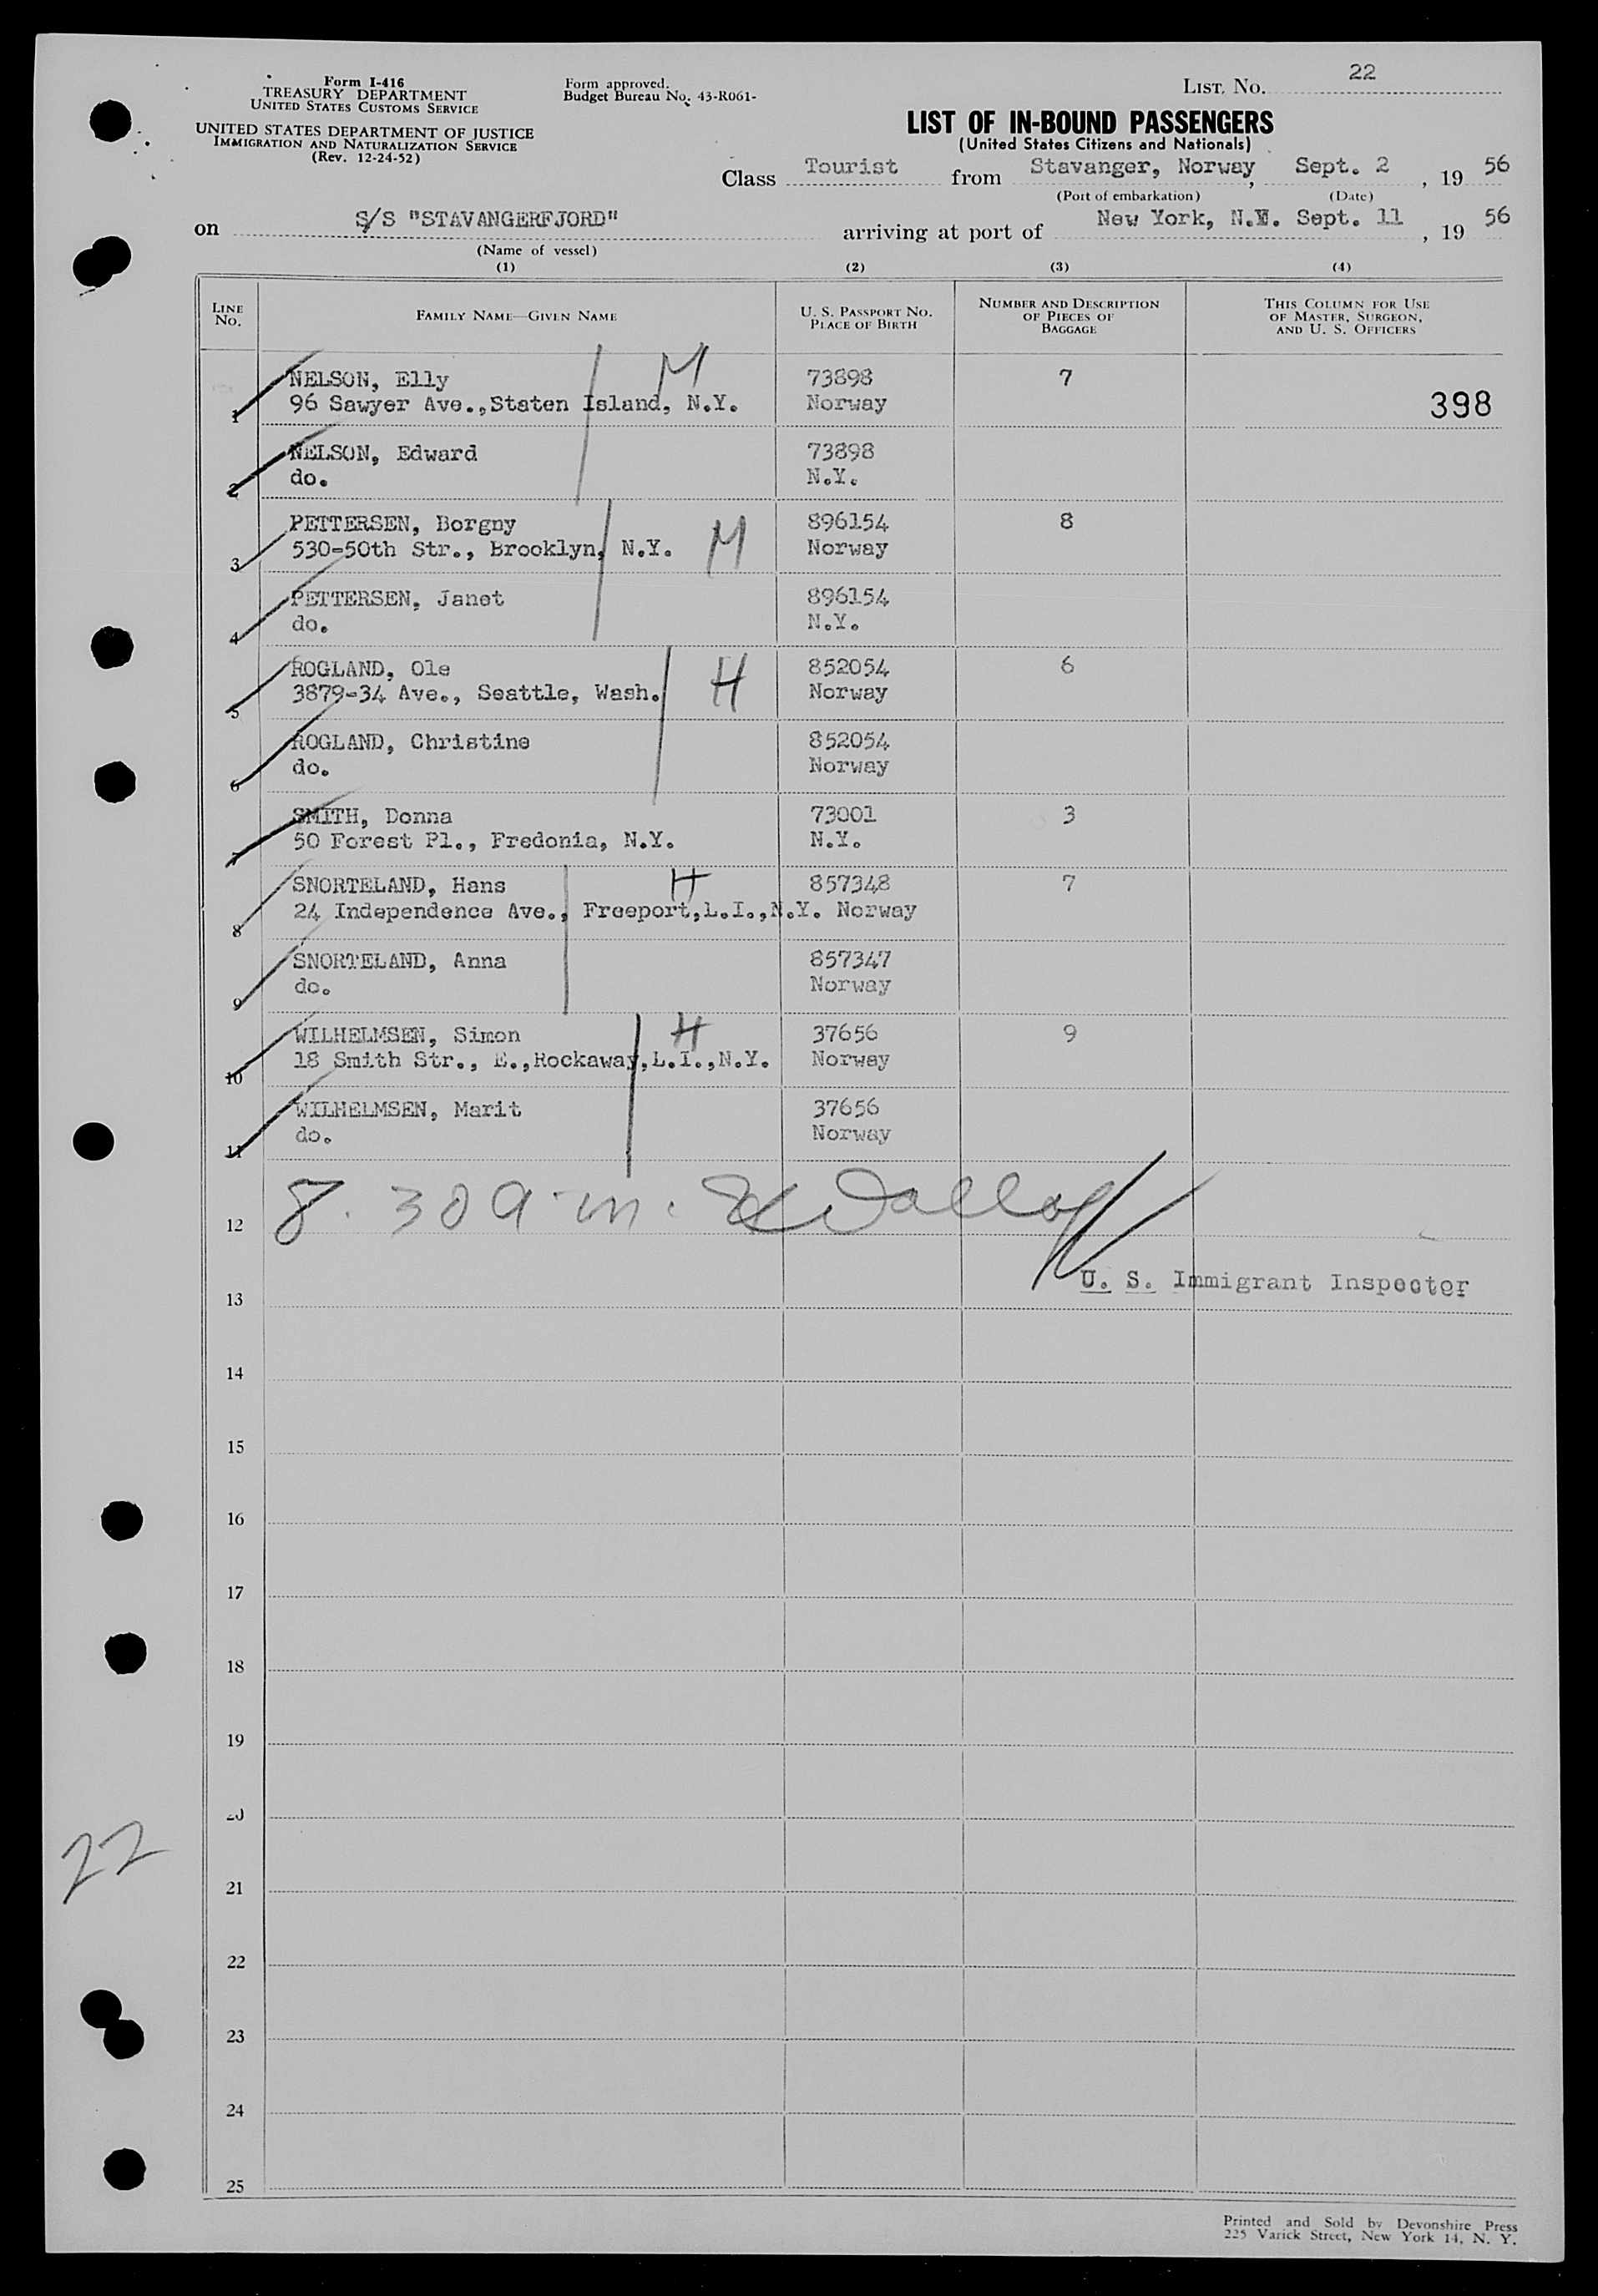 Form I-416
TREASURY DEPARTMENT
UNITED STATES CUSTOMS SERVICE
UNITED STATES DEPARTMENT OF JUSTICE
IMMIGRATION AND NATURALIZATION SERVICE
(Rev. 12-24-52)
Form approved.
Budget Bureau No. 43-R061-
LIST. No. 22
LIST OF IN-BOUND PASSENGERS
(United States Citizens and Nationals)
Class Tourist from Stavanger, Norway, Sept. 2, 19 56
(Port of embarkation) (Date)
on S/S "STAVANGERFJORD" arriving at port of New York, N.Y. Sept. 11, 19 56
(Name of vessel)
(1) (2) (3) (4)
LINE No. FAMILY NAME—GIVEN NAME U. S. PASSPORT NO. PLACE OF BIRTH NUMBER AND DESCRIPTION OF PIECES OF BAGGAGE THIS COLUMN FOR USE OF MASTER, SURGEON, AND U. S. OFFICERS
NELSON, Elly M 73898 7
1 96 Sawyer Ave.,Staten Island, N.Y. Norway 398
NELSON, Edward 73898
2 do. N.Y.
PETTERSEN, Borgny 896154 8
3 530-50th Str., Brooklyn, N.Y. M Norway
PETTERSEN, Janet 896154
4 do. N.Y.
ROGLAND, Ole H 852054 6
5 3879-34 Ave., Seattle, Wash. Norway
ROGLAND, Christine 852054
6 do. Norway
SMITH, Donna 73001 3
7 50 Forest Pl., Fredonia, N.Y. N.Y.
SNORTELAND, Hans H 857348 7
8 24 Independence Ave., Freeport,L.I.,N.Y. Norway
SNORTELAND, Anna 857347
9 do. Norway
WILHELMSEN, Simon H 37656 9
10 18 Smith Str., E.,Rockaway,L.I.,N.Y. Norway
WILHELMSEN, Marit 37656
11 do. Norway
12 8.30 a.m.
U. S. Immigrant Inspector
13
14
15
16
17
18
19
20
21
22
22
23
24
25
Printed and Sold by Devonshire Press
225 Varick Street, New York 14, N. Y.